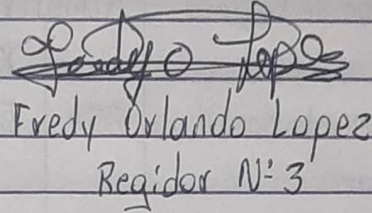 Fredy O Lopez
Fredy Orlando Lopez
Regidor Nº 3